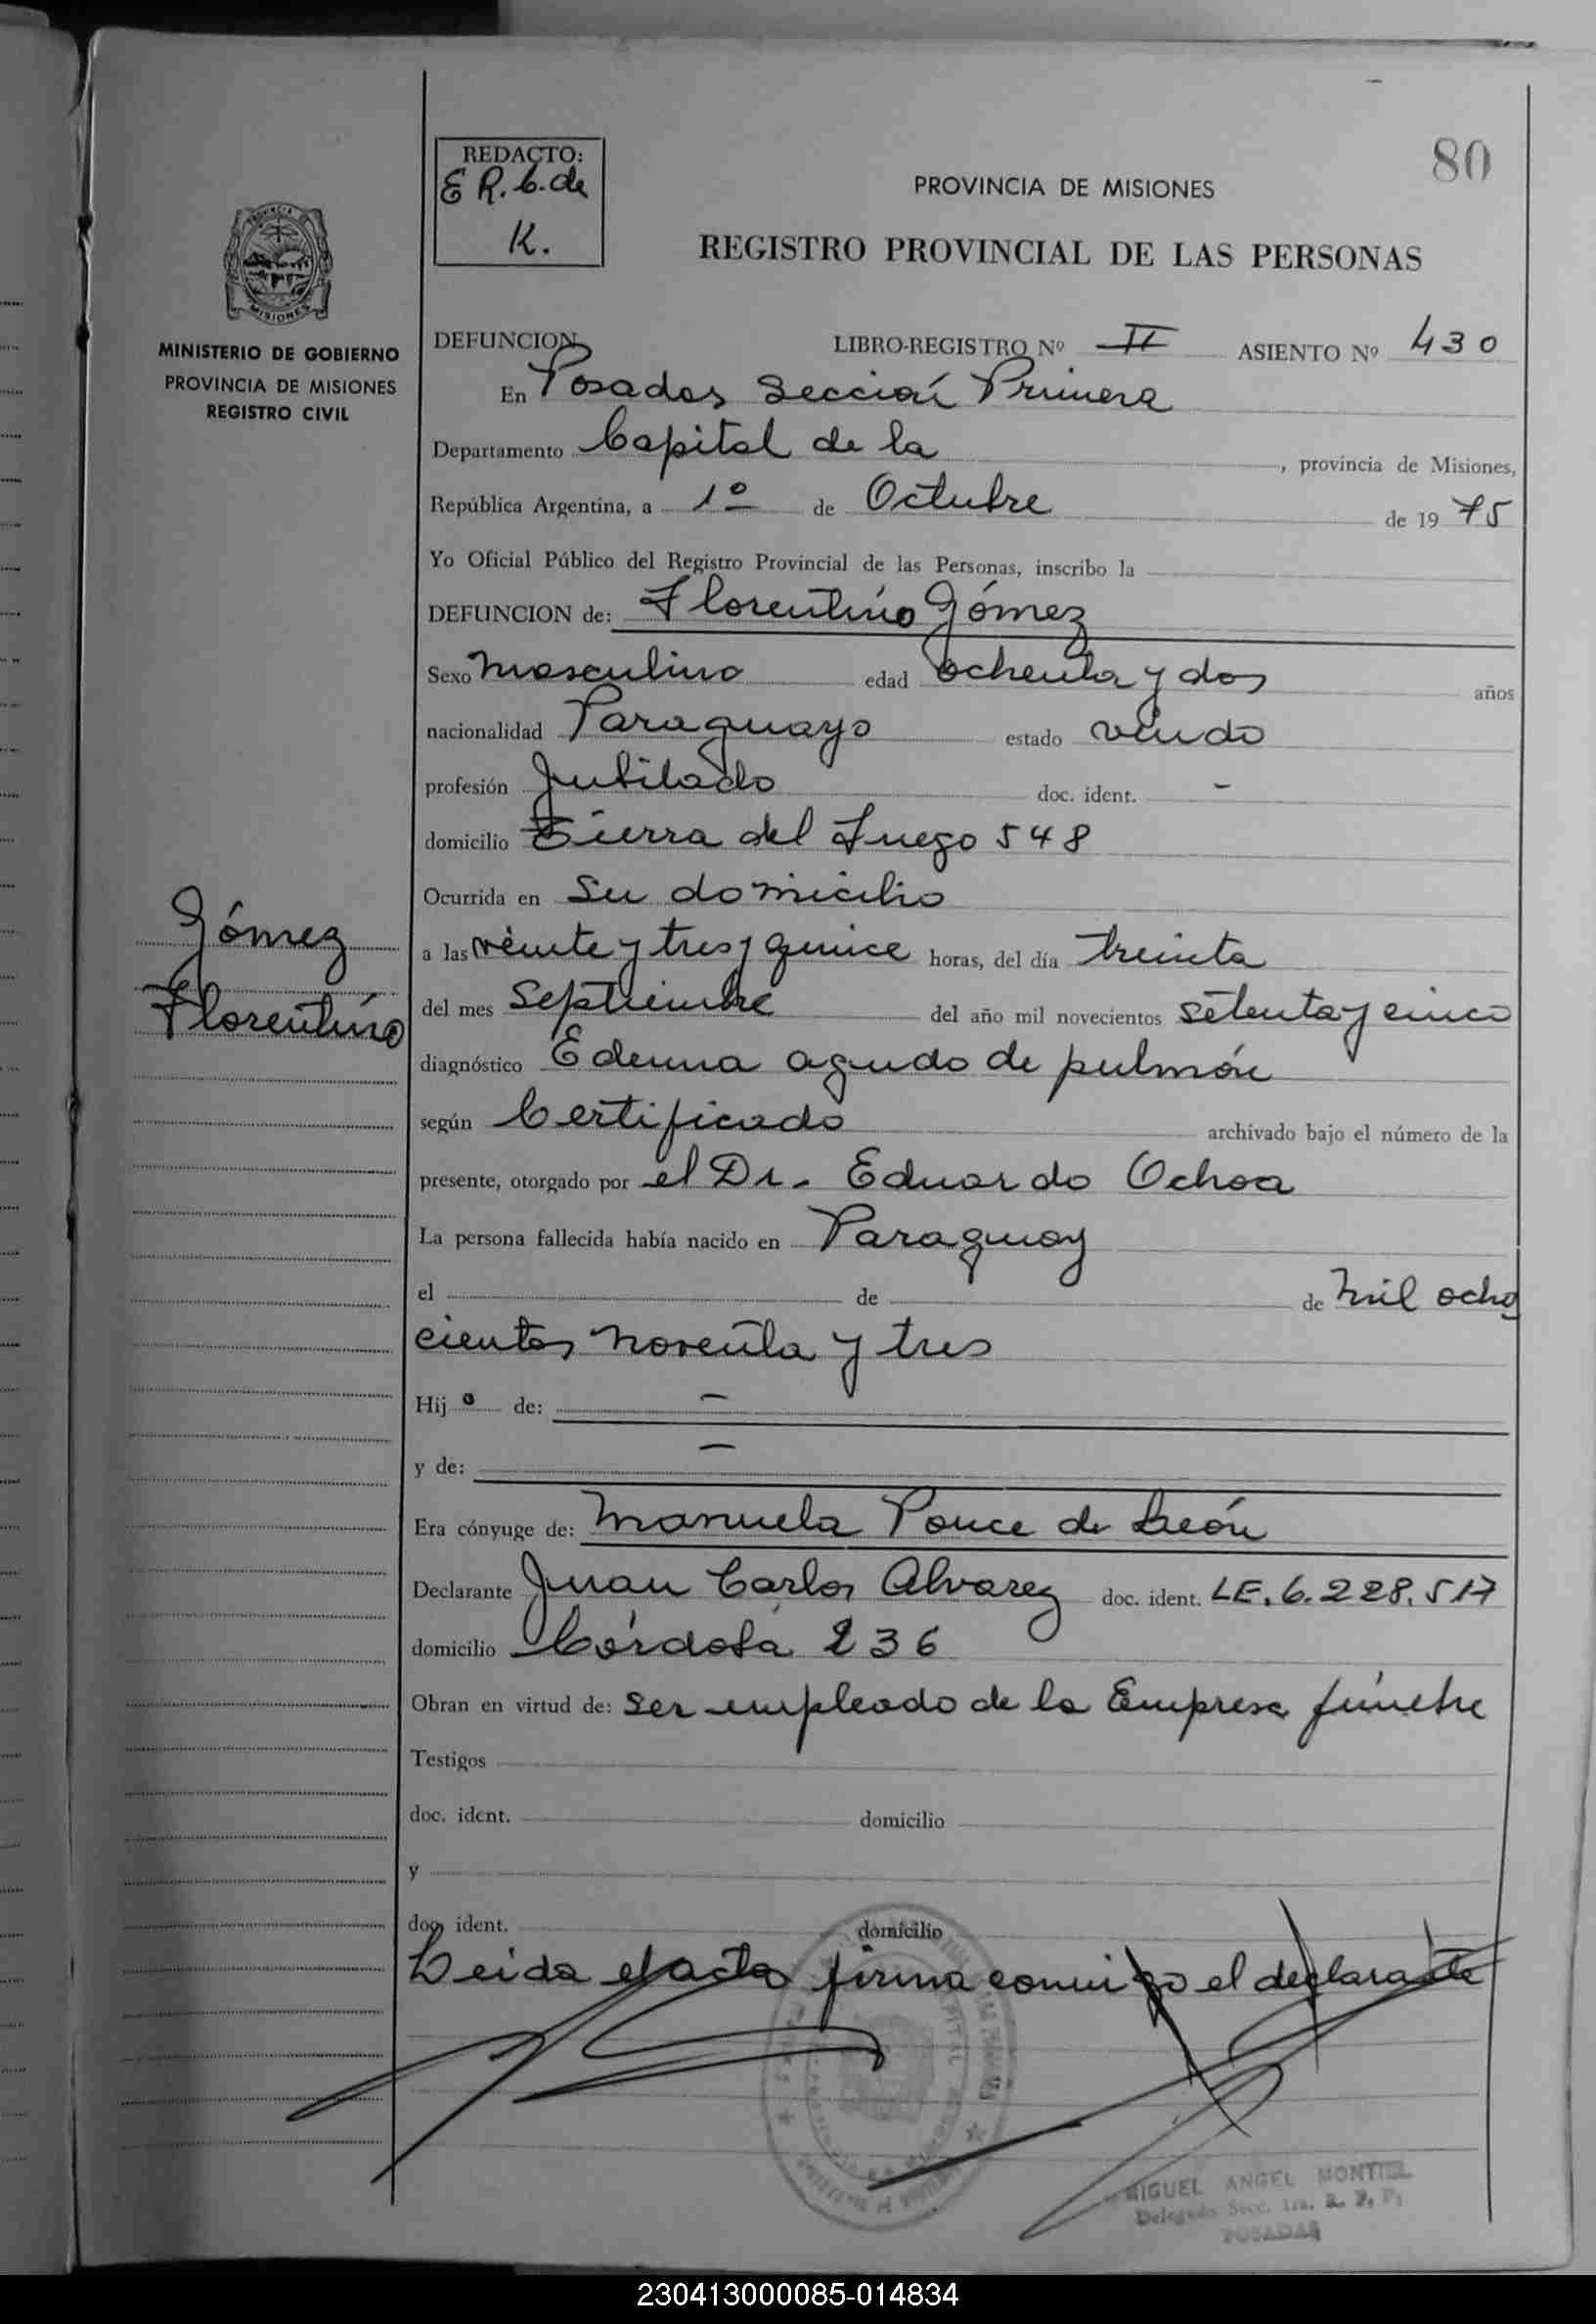 80
REDACTO:
E R. C. de
K.
PROVINCIA DE MISIONES
REGISTRO PROVINCIAL DE LAS PERSONAS
PROVINCIA DE
MISIONES
MINISTERIO DE GOBIERNO
PROVINCIA DE MISIONES
REGISTRO CIVIL
DEFUNCION LIBRO-REGISTRO Nº II ASIENTO Nº 430
En Posadas Sección Primera
Departamento Capital de la , provincia de Misiones,
República Argentina, a 1º de Octubre de 1975
Yo Oficial Público del Registro Provincial de las Personas, inscribo la
DEFUNCION de: Florentino Gómez
Sexo Masculino edad ochenta y dos años
nacionalidad Paraguayo estado viudo
profesión Jubilado doc. ident. -
domicilio Tierra del Fuego 548
Ocurrida en Su domicilio
Gómez
Florentino
a las veinte y tres y quince horas, del día treinta
del mes Septiembre del año mil novecientos setenta y cinco
diagnóstico Edema agudo de pulmón
según Certificado archivado bajo el número de la
presente, otorgado por el Dr. Eduardo Ochoa
La persona fallecida había nacido en Paraguay
el de de Mil ocho
cientos noventa y tres
Hijo de: -
y de: -
Era cónyuge de: Manuela Ponce de León
Declarante Juan Carlos Alvarez doc. ident. LE. 6.228.517
domicilio Córdoba 236
Obran en virtud de: ser empleado de la Empresa fúnebre
Testigos
doc. ident. domicilio
y
doc. ident. domicilio
Leida el acta firma conmigo el declarante
MIGUEL ANGEL MONTIEL
Delegado Secc. 1ra. R. P. P.
POSADAS
230413000085-014834